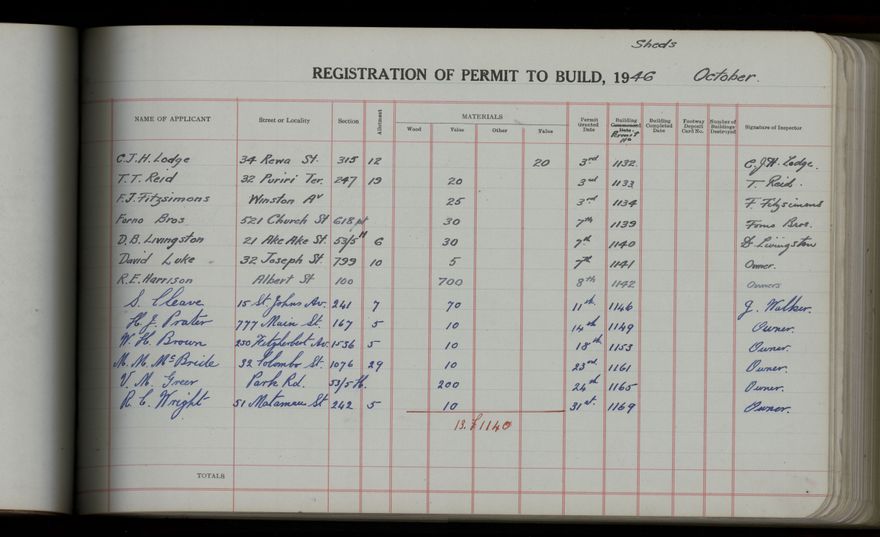 Sheds
REGISTRATION OF PERMIT TO BUILD, 1946 October.
NAME OF APPLICANT Street or Locality Section Allotment MATERIALS Wood Value Other Value Permit Granted Date Building Commenced Date Permit No Building Completed Date Footway Deposit Card No. Number of Buildings Destroyed Signature of Inspector
C.J.H. Lodge 34 Rewa St. 315 12 20 3rd 1132 C.J.H. Lodge.
T.T. Reid 32 Puriri Ter. 247 19 20 3rd 1133 T. Reid.
F.J. Fitzsimons Winston Av 25 3rd 1134 F. Fitzsimons
Forno Bros 521 Church St 618 pt 30 7th 1139 Forno Bros.
D.B. Livingston 21 Ake Ake St. 53/5 H 6 30 7th 1140 D Livingston
David Luke 32 Joseph St 799 10 5 7th 1141 Owner.
R.E. Harrison Albert St 100 700 8th 1142 Owners
S. Cleave 15 St. Johns Av. 241 7 70 11th 1146 J. Walker.
H. J. Prater 777 Main St. 167 5 10 14th 1149 Owner.
W. H. Brown 250 Fitzherbert Av. 1536 5 10 18th 1153 Owner.
M. M. McBride 32 Colombo St. 1076 29 10 23rd 1161 Owner.
V. M. Greer Park Rd. 53/5 H. 200 24th 1165 Owner.
R. C. Wright 51 St 242 5 10 31st. 1169 Owner.
13. £1140
TOTALS